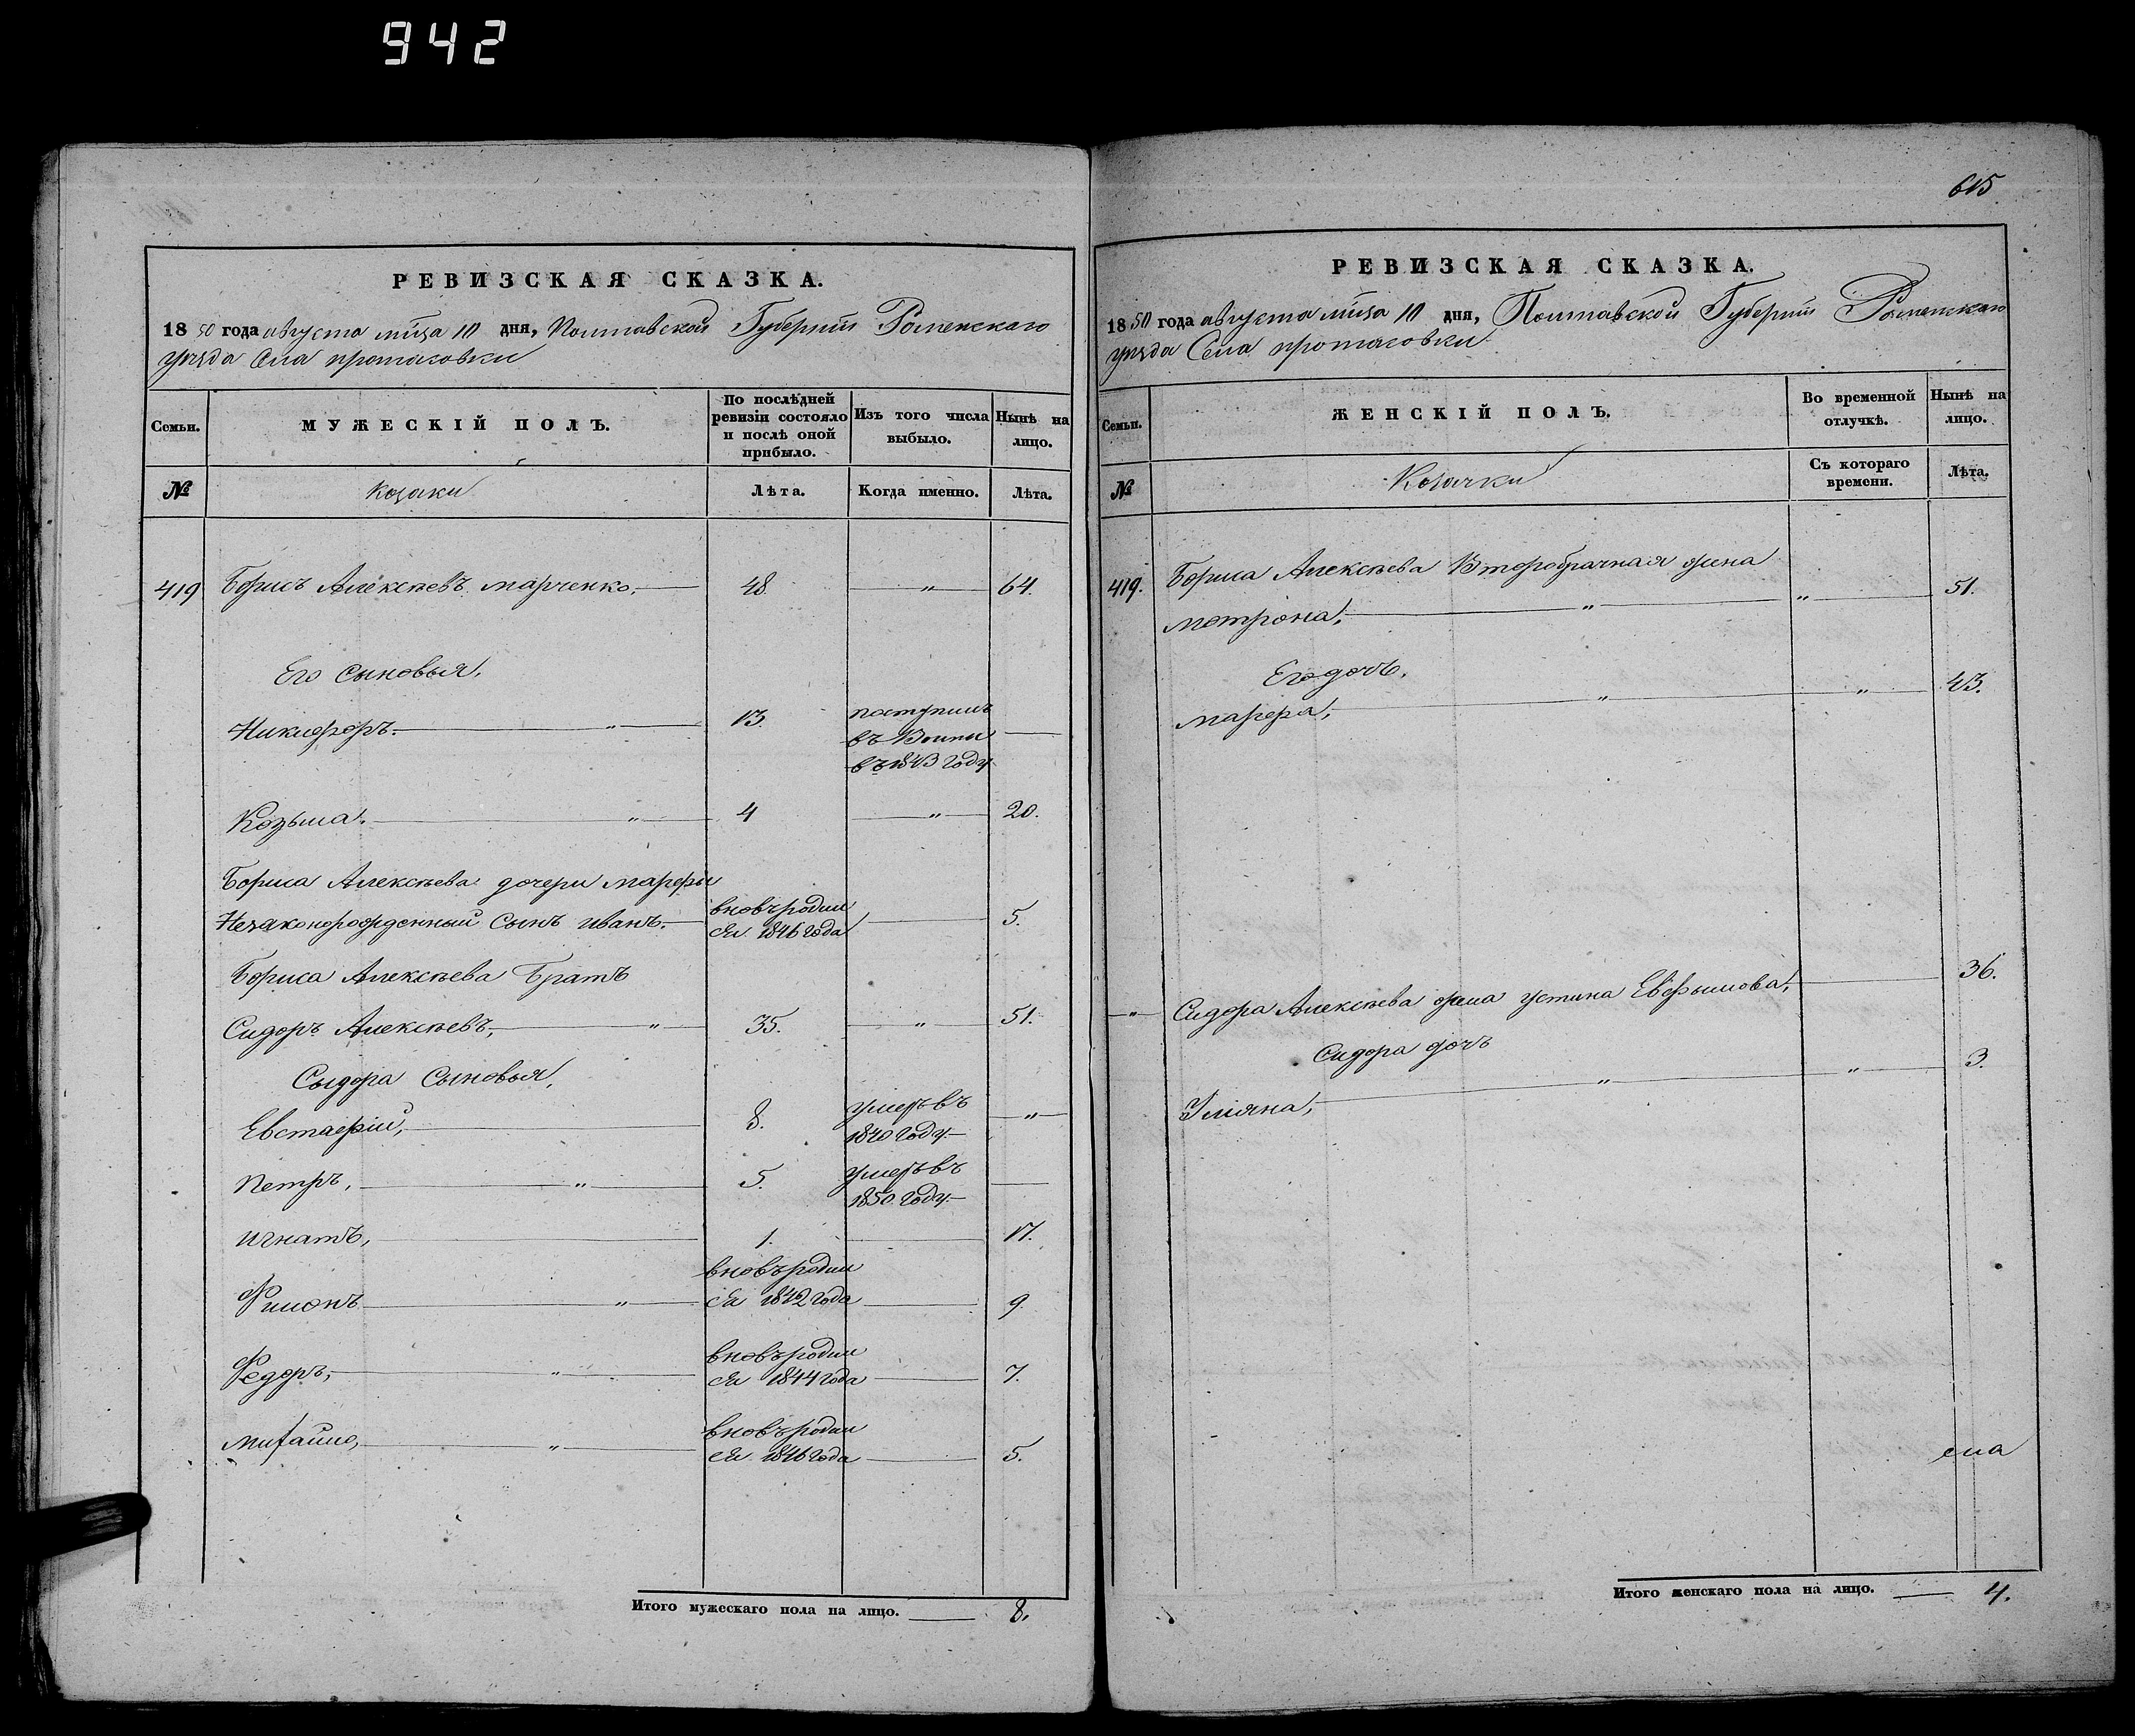 942
РЕВИЗСКАЯ СКАЗКА.
1850 года августа мѣца 10 дня, Полтавской Губерніи Роменскаго
уѣзда Села протасовки
Семьи.
МУЖЕСКІЙ ПОЛЪ.
По послѣдней
ревизіи состояло
и послѣ оной
прибыло.
Изъ того числа
выбыло.
Нынѣ на
лицо.
№
Козаки
Лѣта.
Когда именно.
Лѣта.
419 Борисъ Алексѣевъ марченко. 48. " 64.
Его сыновья,
Никифоръ. " 13. поступилъ
въ
въ 1843 году
Козьма. " 4 " 20.
Бориса Алексѣева дочери марфы
Незаконорожденный Сынъ иванъ. вновьродил
ся 1846 года 5.
Бориса Алексѣева Братъ
Сидоръ Алексѣевъ, " 35. " 51.
Сыдора Сыновья,
Евстафій, 8. умеръ въ
1840 году "
Петръ, " 5. умеръ въ
1850 году
игнатъ, 1. 17.
Филонъ " вновьродил
ся 1842 года 9.
Федоръ, " вновьродил
ся 1844 года 7.
михайло, " вновьродил
ся 1846 года 5.
Итого мужескаго пола на лицо. 8.
615
РЕВИЗСКАЯ СКАЗКА.
1850 года августа мѣца 10 дня, Полтавской Губерніи Роменскаго
уѣзда Села протасовки
Семьи.
ЖЕНСКІЙ ПОЛЪ.
Во временной
отлучкѣ.
Нынѣ на
лицо.
№
Козачки
Съ котораго
времени.
Лѣта.
419. Бориса Алексѣева Второбрачная жена
мотрона, " " 51.
Его дочь,
марфа, " " 43.
" Сидора Алексѣева жена устина Евфимова, 36.
Сидора дочь
Уляна, " " 3.
села
Итого женскаго пола на лицо. 4.